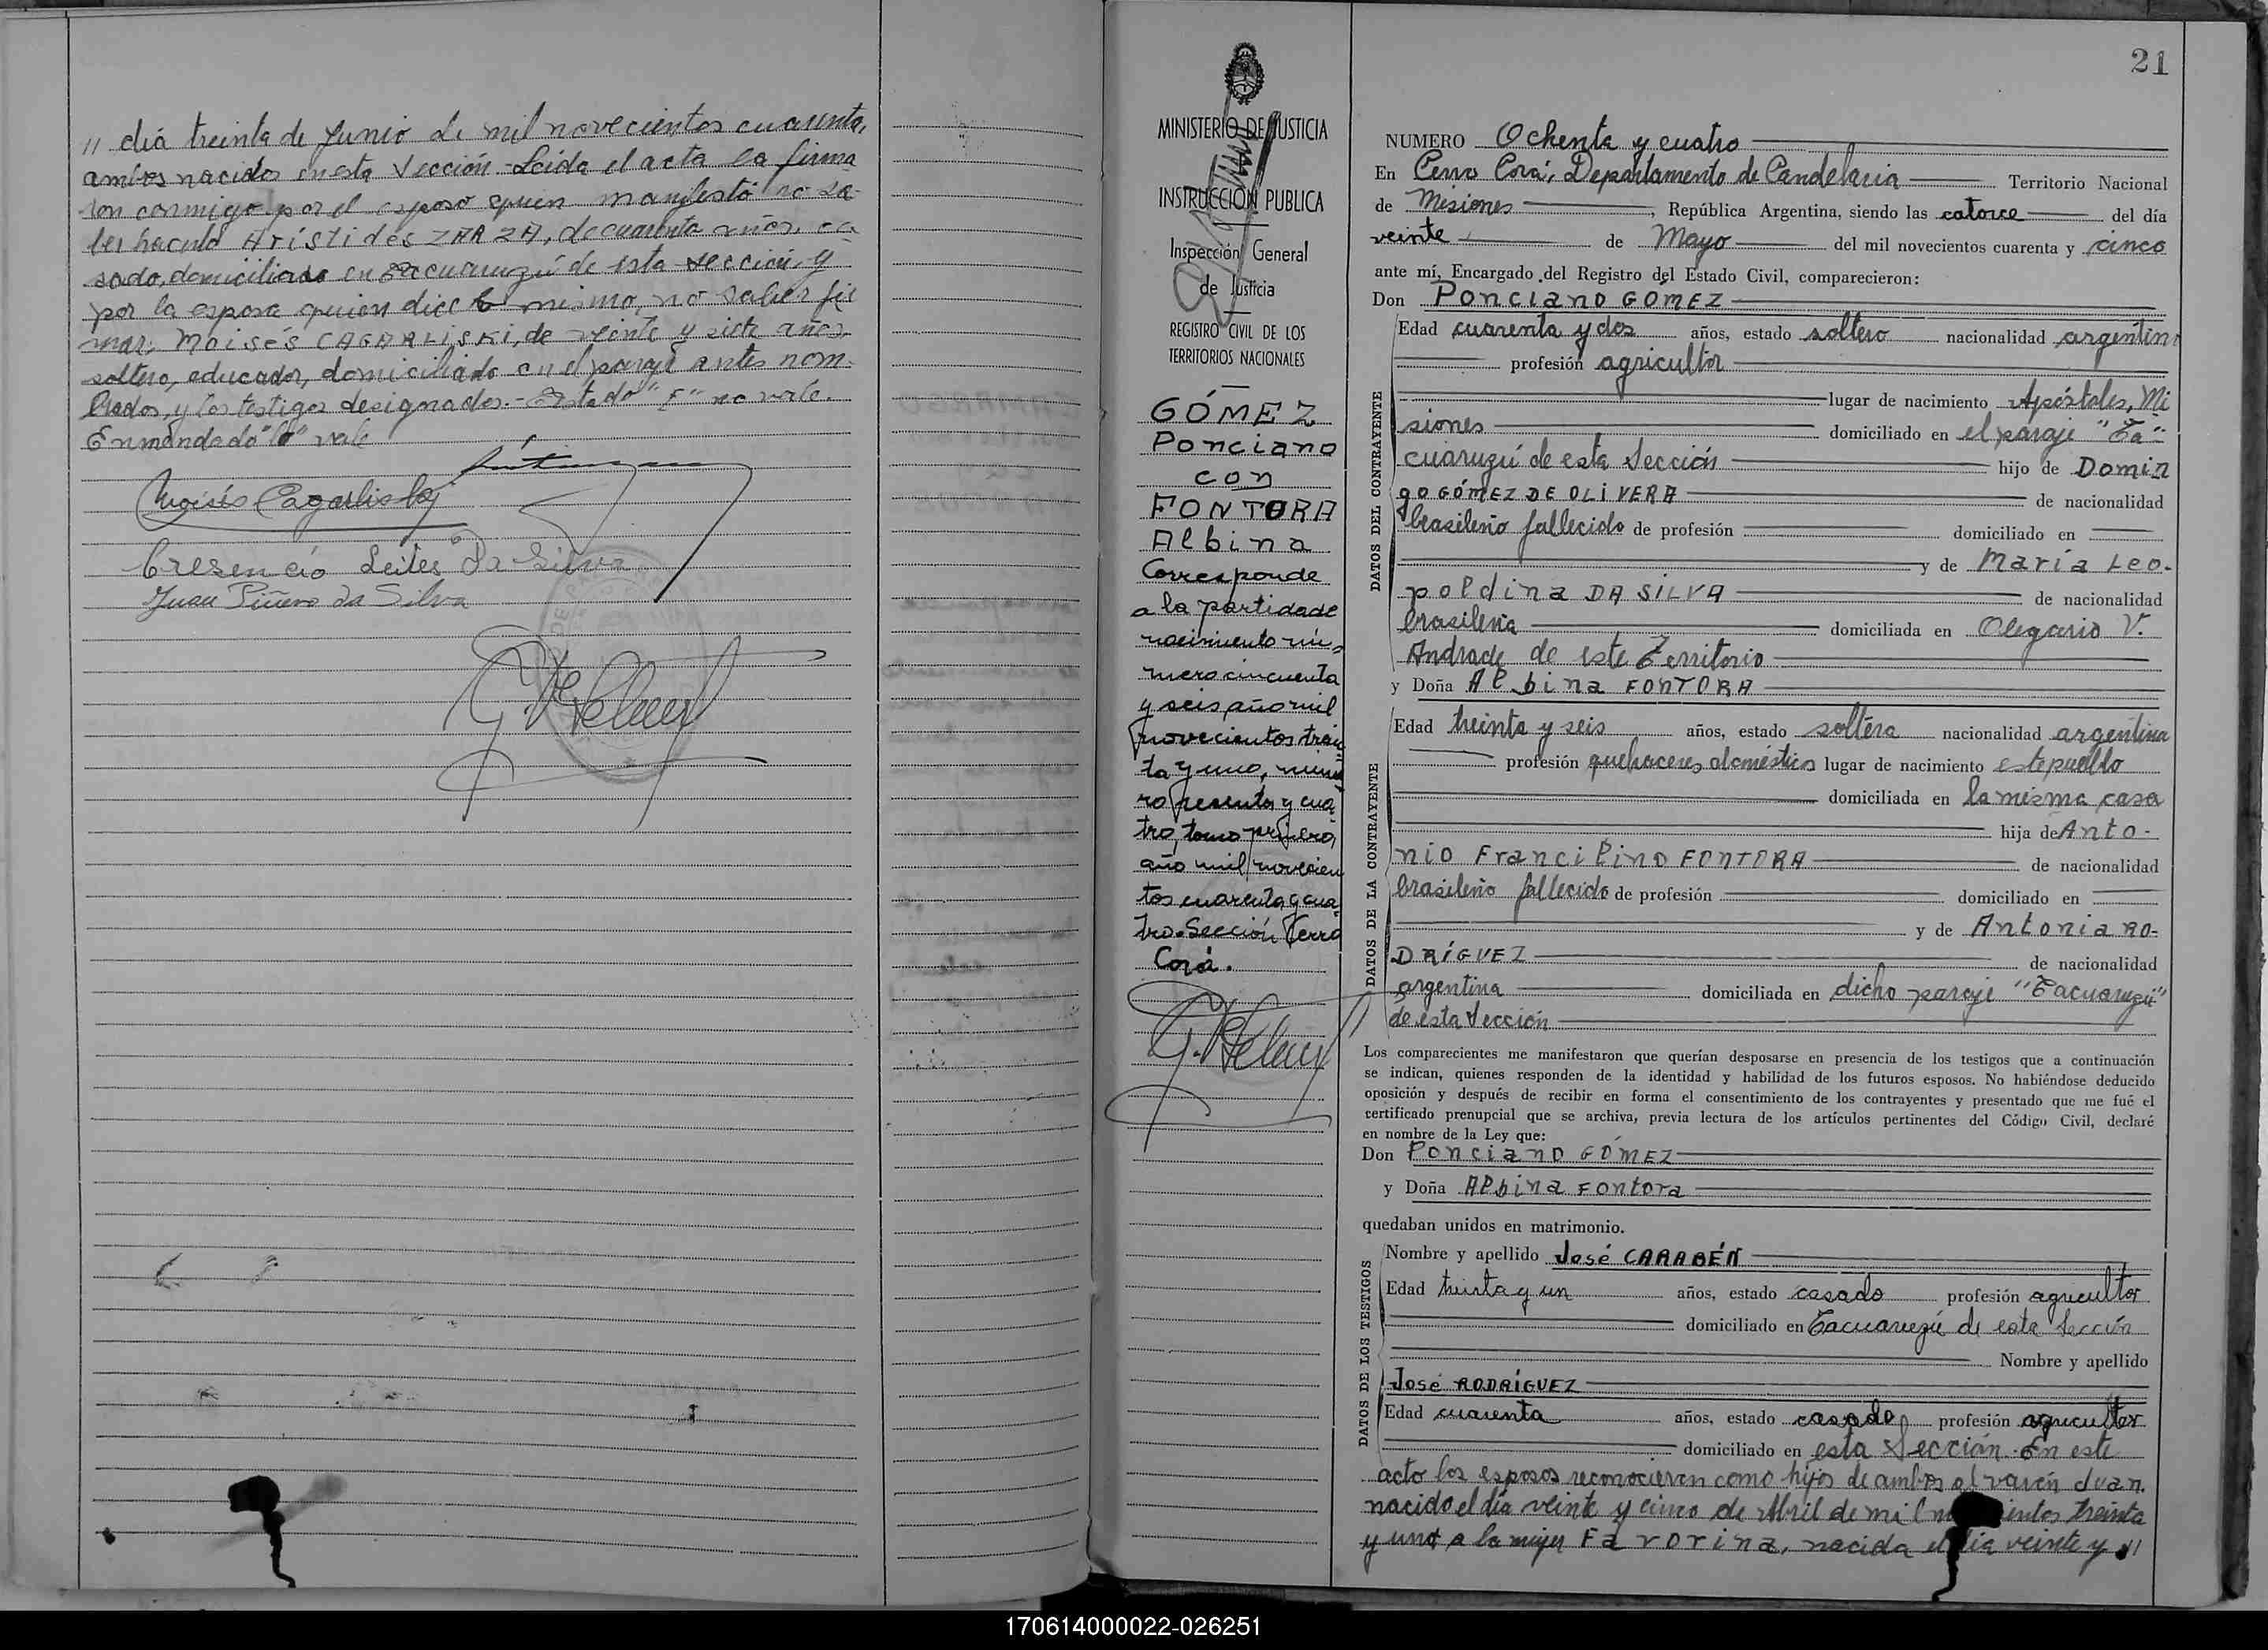 " día treinta de Junio de mil novecientos cuarenta,
ambos nacidos en esta Sección. Leida el acta la firma
ron conmigo por el esposo quien manifestó no sa-
ber hacerlo Arístides ZARZA, de cuarenta años, ca
sado, domiciliado en Tacuaruzú de esta sección, y
por la esposa quien dice lo mismo, no saber fir
mar, Moisés CAGARLISKI, de veinte y siete años,
soltero, educador, domiciliado en el paraje antes nom-
brados, y los testigos designados.-
Enmendado "lo" vale
Moisés Cagarlisky
Cresencio Leites Da Silva
Juan Piñero da Silva
21
MINISTERIO DE JUSTICIA
INSTRUCCIÓN PUBLICA
Inspección General
de Justicia
REGISTRO CIVIL DE LOS
TERRITORIOS NACIONALES
GÓMEZ
Ponciano
con
FONTORA
Albina
Corresponde
a la partida de
nacimiento nú-
mero cincuenta
y seis año mil
novecientos trein
ta y uno, núme
ro sesenta y cua
tro, tomo primero,
año mil novecien
tos cuarenta y cua
tro. Sección Cerro
Corá.
NUMERO Ochenta y cuatro
En Cerro Corá, Departamento de Candelaria Territorio Nacional
de Misiones, República Argentina, siendo las catorce del día
veinte de Mayo del mil novecientos cuarenta y cinco
ante mí, Encargado del Registro del Estado Civil, comparecieron:
Don Ponciano GÓMEZ
DATOS DEL CONTRAYENTE
Edad cuarenta y dos años, estado soltero nacionalidad argentin
profesión agricultor
lugar de nacimiento Apóstoles, Mi
siones domiciliado en el paraje "Ta"-
cuaruzú de esta Sección hijo de Domin
go GÓMEZ DE OLIVERA de nacionalidad
brasileño fallecido de profesión domiciliado en
y de María Leo-
poldina DA SILVA de nacionalidad
brasileña domiciliada en Olegario V.
Andrade de este Territorio
y Doña Albina FONTORA
DATOS DE LA CONTRAYENTE
Edad treinta y seis años, estado soltera nacionalidad argentina
profesión quehaceres domésticos lugar de nacimiento este pueblo
domiciliada en la misma casa
hija de Anto-
nio Francilino FONTORA de nacionalidad
brasileño fallecido de profesión domiciliado en
y de Antonia RO-
DRÍGUEZ de nacionalidad
argentina domiciliada en dicho paraje "Tacuaruzú"
de esta Sección
Los comparecientes me manifestaron que querían desposarse en presencia de los testigos que a continuación
se indican, quienes responden de la identidad y habilidad de los futuros esposos. No habiéndose deducido
oposición y después de recibir en forma el consentimiento de los contrayentes y presentado que me fué el
certificado prenupcial que se archiva, previa lectura de los artículos pertinentes del Código Civil, declaré
en nombre de la Ley que:
Don Ponciano GÓMEZ
y Doña Albina FONTORA
quedaban unidos en matrimonio.
DATOS DE LOS TESTIGOS
Nombre y apellido José CARABÉN
Edad treinta y un años, estado casado profesión agricultor
domiciliado en Tacuaruzú de esta Sección
Nombre y apellido
José RODRÍGUEZ
Edad cuarenta años, estado casado profesión agricultor
domiciliado en esta Sección. En este
acto los esposos reconocieron como hijos de ambos al varón Juan,
nacido el día veinte y cinco de Abril de mil novecientos treinta
y uno a la mujer Favorina, nacida el día veinte y "
170614000022-026251